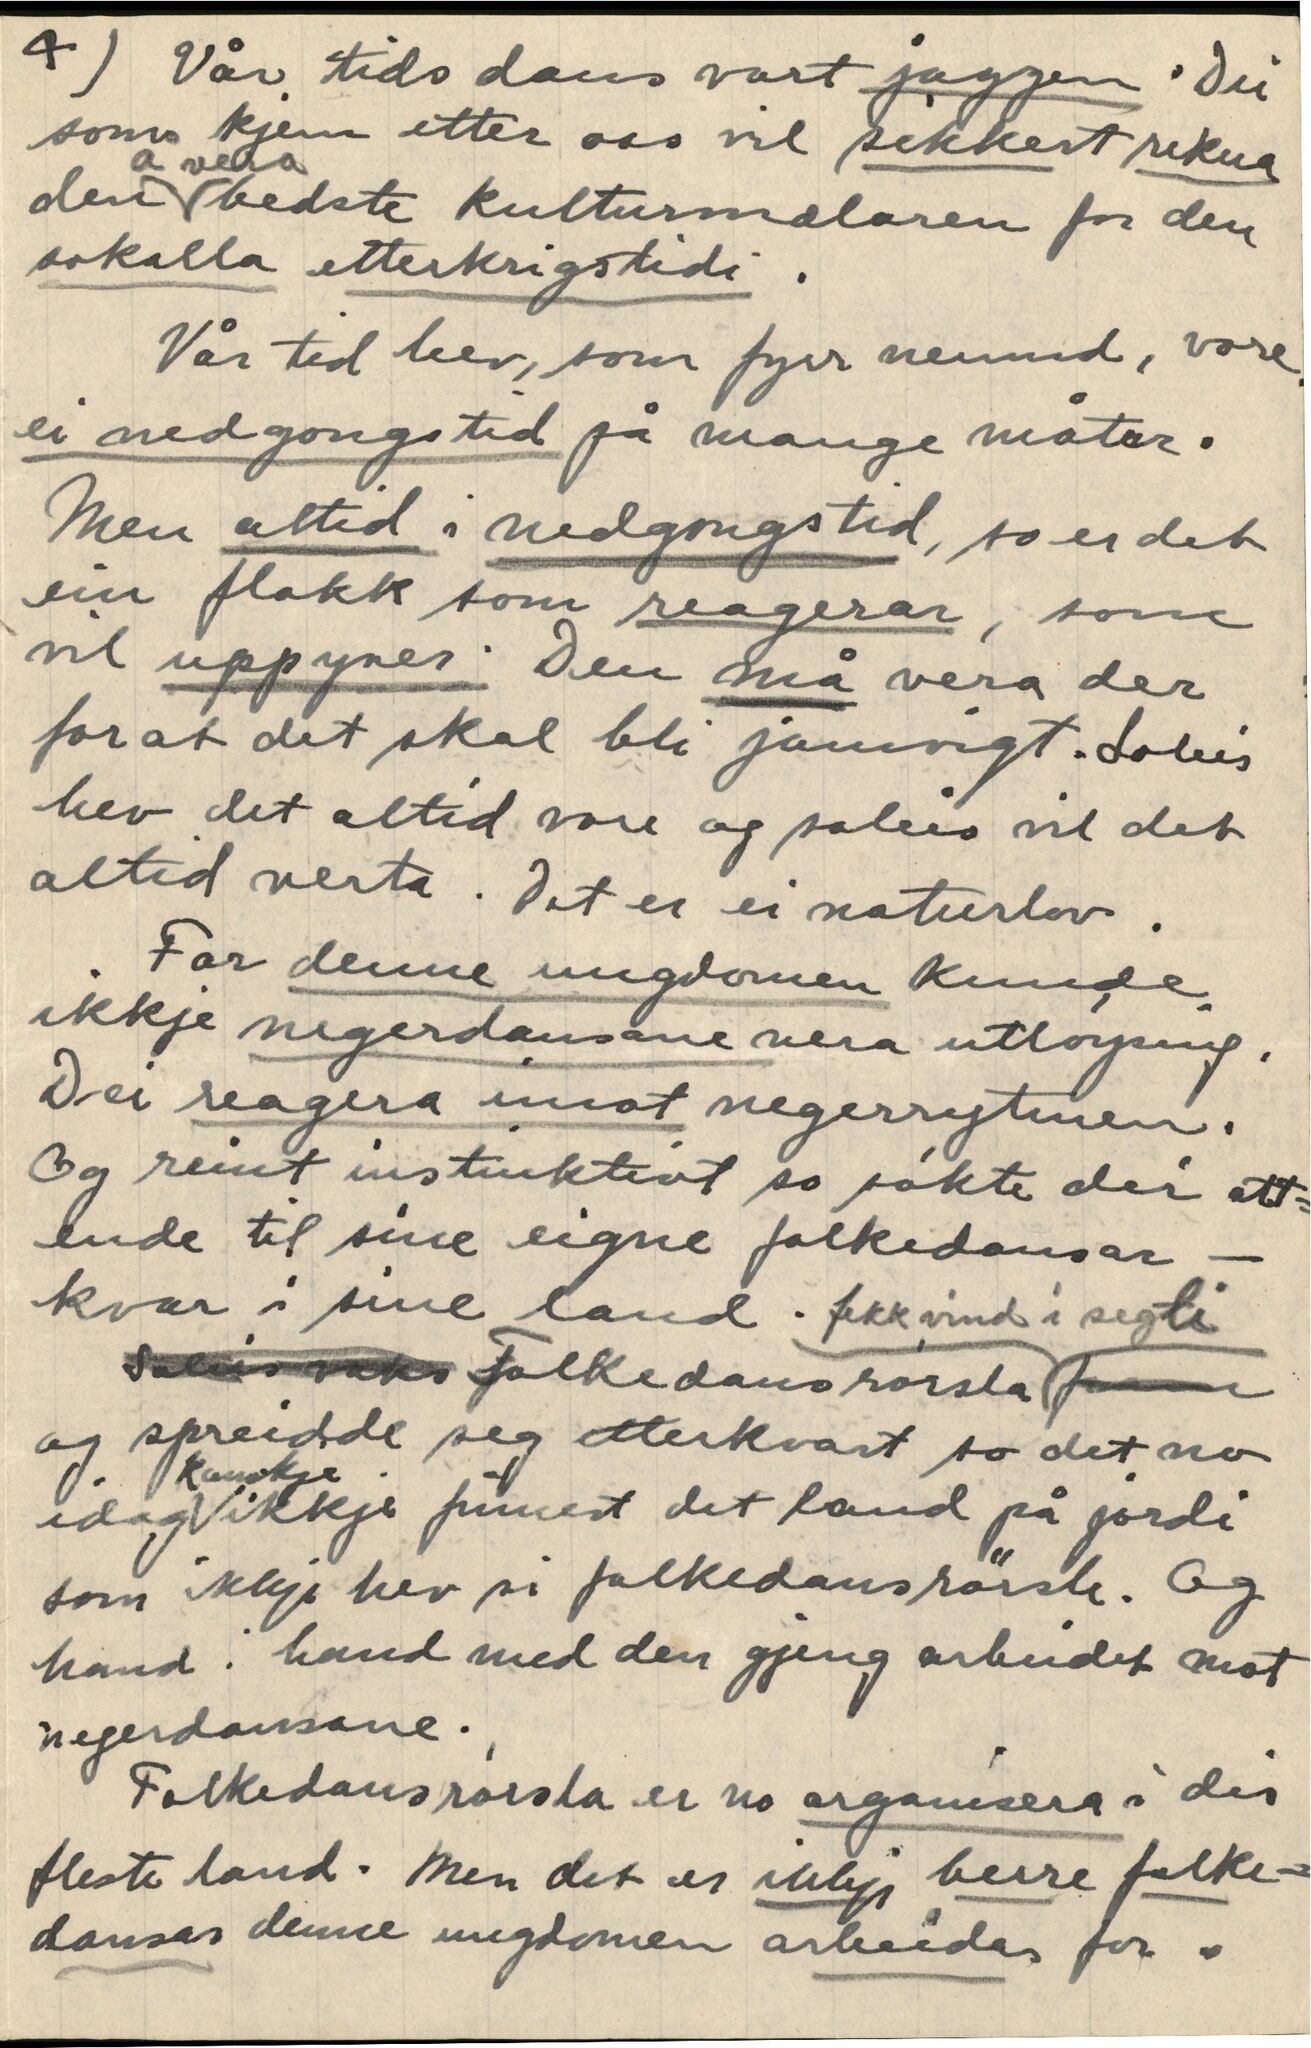 4) Vår tids dans vart jazzen. Dei
som kjem etter oss vil sikkert rekna
den å vera bedste kulturmælaren for den
sokalla etterkrigstidi.
Vår tid hev, som fyrr nemnd, vore
ei nedgongstid på mange måtar.
Men altid i nedgongstid, so er det
ein flokk som reagerar, som
vil uppyver. Den må vera der
for at det skal bli jamvigt. Soleis
hev det altid vore og soleis vil det
altid verta. Det er ei naturlov.
For denne ungdomen kunde
ikkje negerdansane vera utløysing.
Dei reagera imot negerrytmen.
Og reint instinktivt so søkte dei att=
ende til sine eigne folkedansar —
kvar i sine land.
Soleis vaks Folkedansrørsla fekk vind i segli
og spreidde seg etterkvart so det no
idag kanskje ikkje finnest det land på jordi
som ikkje hev si folkedansrørsle. Og
hand i hand med den gjeng arbeidet mot
negerdansane.
Folkedansrørsla er no organisera i dei
fleste land. Men det er ikkje berre folke=
dansar denne ungdomen arbeidar for.